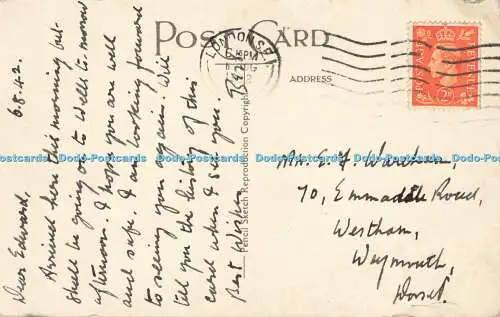 POST CARD
ADDRESS
LONDON S.E.1
6.15 PM
POSTAGE REVENUE
2D
6.8.42.
Dear Edward,
Arrived here this morning but
shall be going on to Wells to-morrow
afternoon. I hope you are well
and safe. I am looking forward
to seeing you again. Will
tell you the history of this
card when I see you.
Best Wishes
Pencil Sketch Reproduction Copyright
Mr. E. F. Wareham,
70, Emmadale Road,
Westham,
Weymouth,
Dorset.
Dodo-Postcards Dodo-Postcards Dodo-Postcards Dodo-Postcards Dodo-Postcards